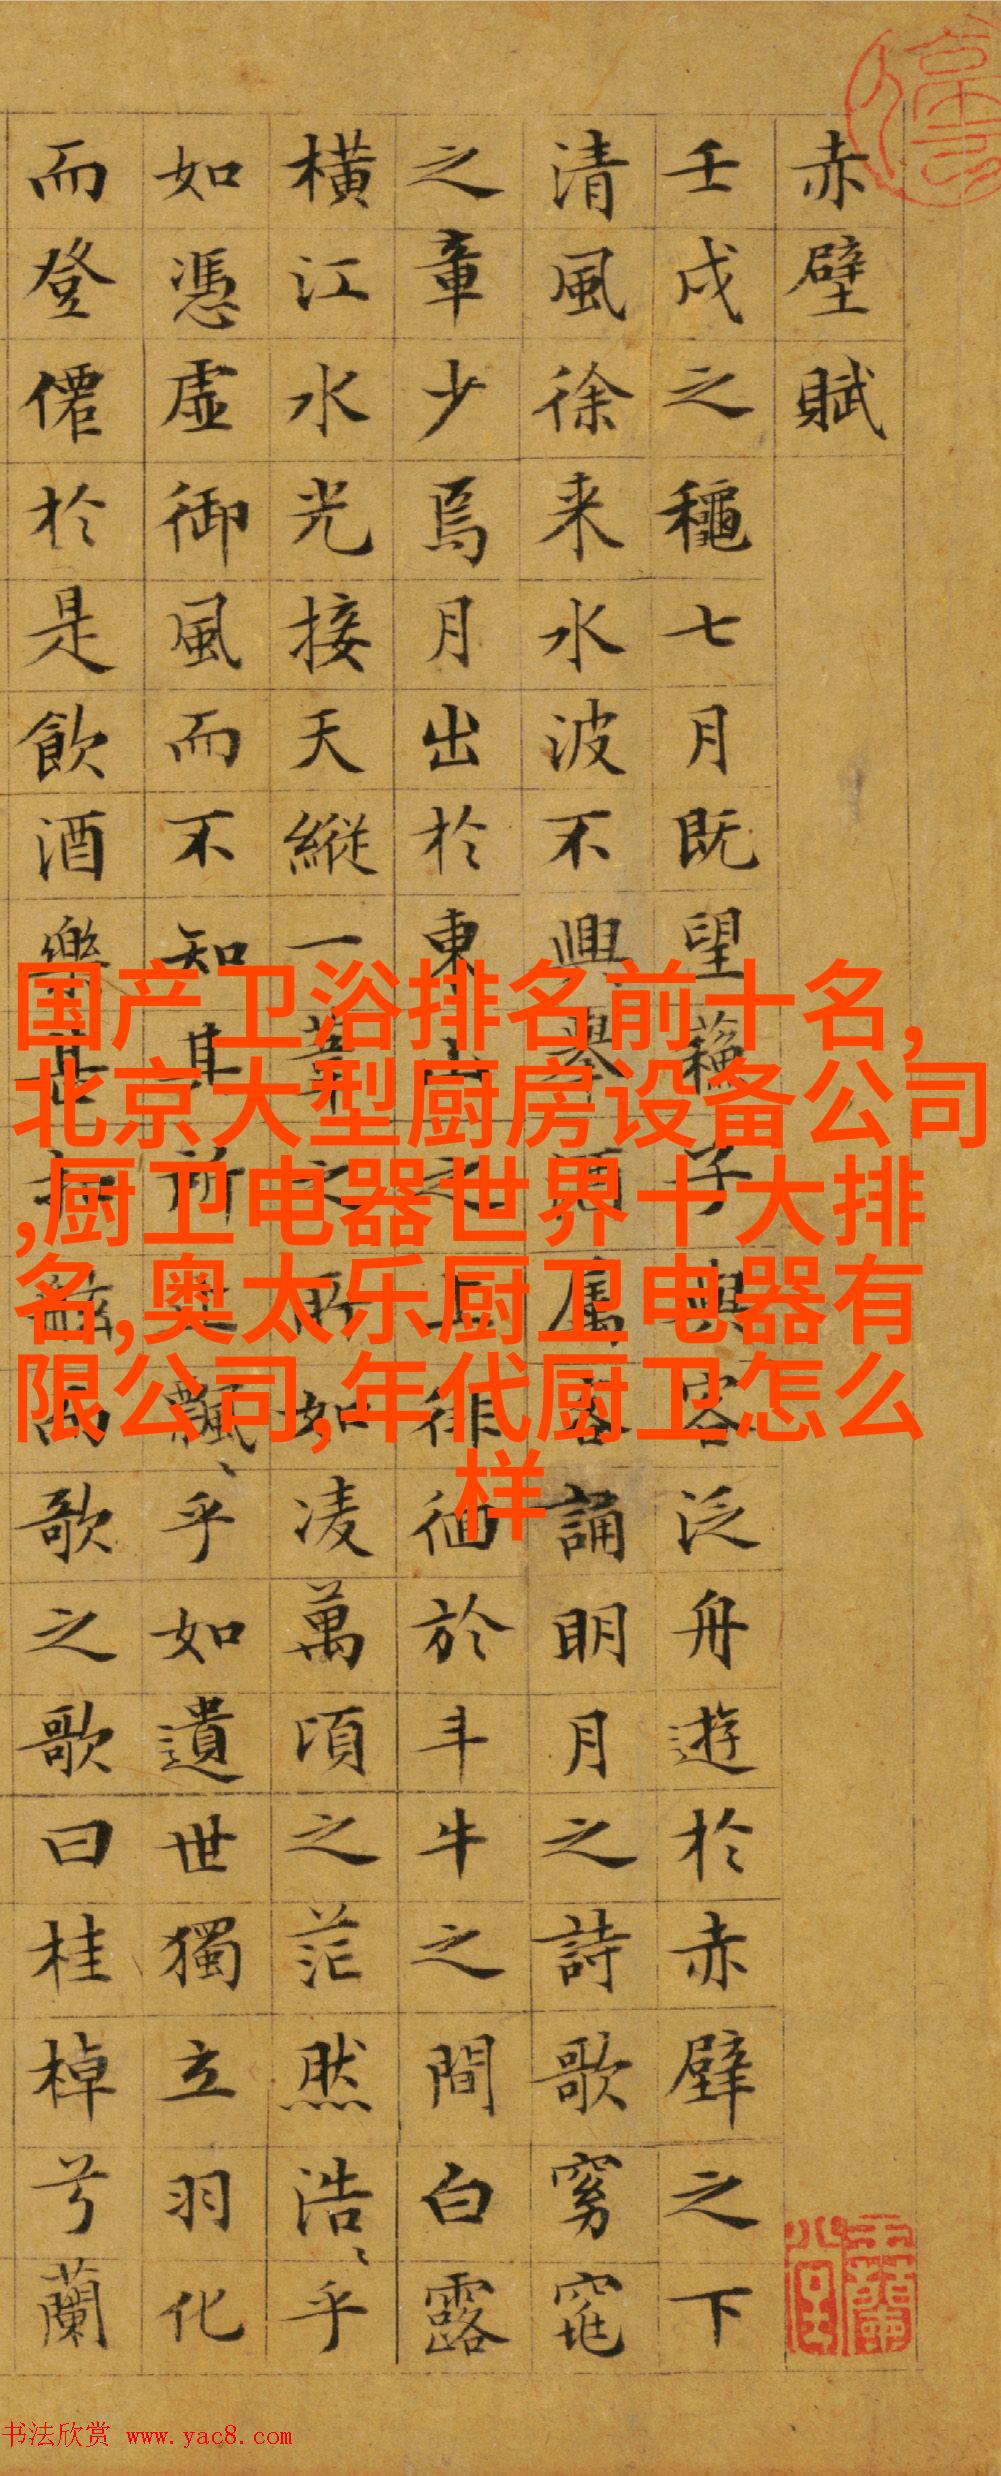 赤壁賦
壬戌之穐七月既望蘓子與客泛舟遊於赤壁之下
清風徐来水波不興舉酒屬客誦明月之詩歌窈窕
之章少焉月出於東山之上徘徊於斗牛之間白露
横江水光接天縱一葦之所如凌萬頃之茫然浩、乎
如憑虛御風而不知其所止飄、乎如遺世獨立羽化
而登僊於是飲酒樂甚扣舷而歌之歌曰桂棹兮蘭
国产卫浴排名前十名,
北京大型厨房设备公司
,厨卫电器世界十大排
名,奥太乐厨卫电器有
限公司,年代厨卫怎么
样
书法欣赏 www.yac8.com